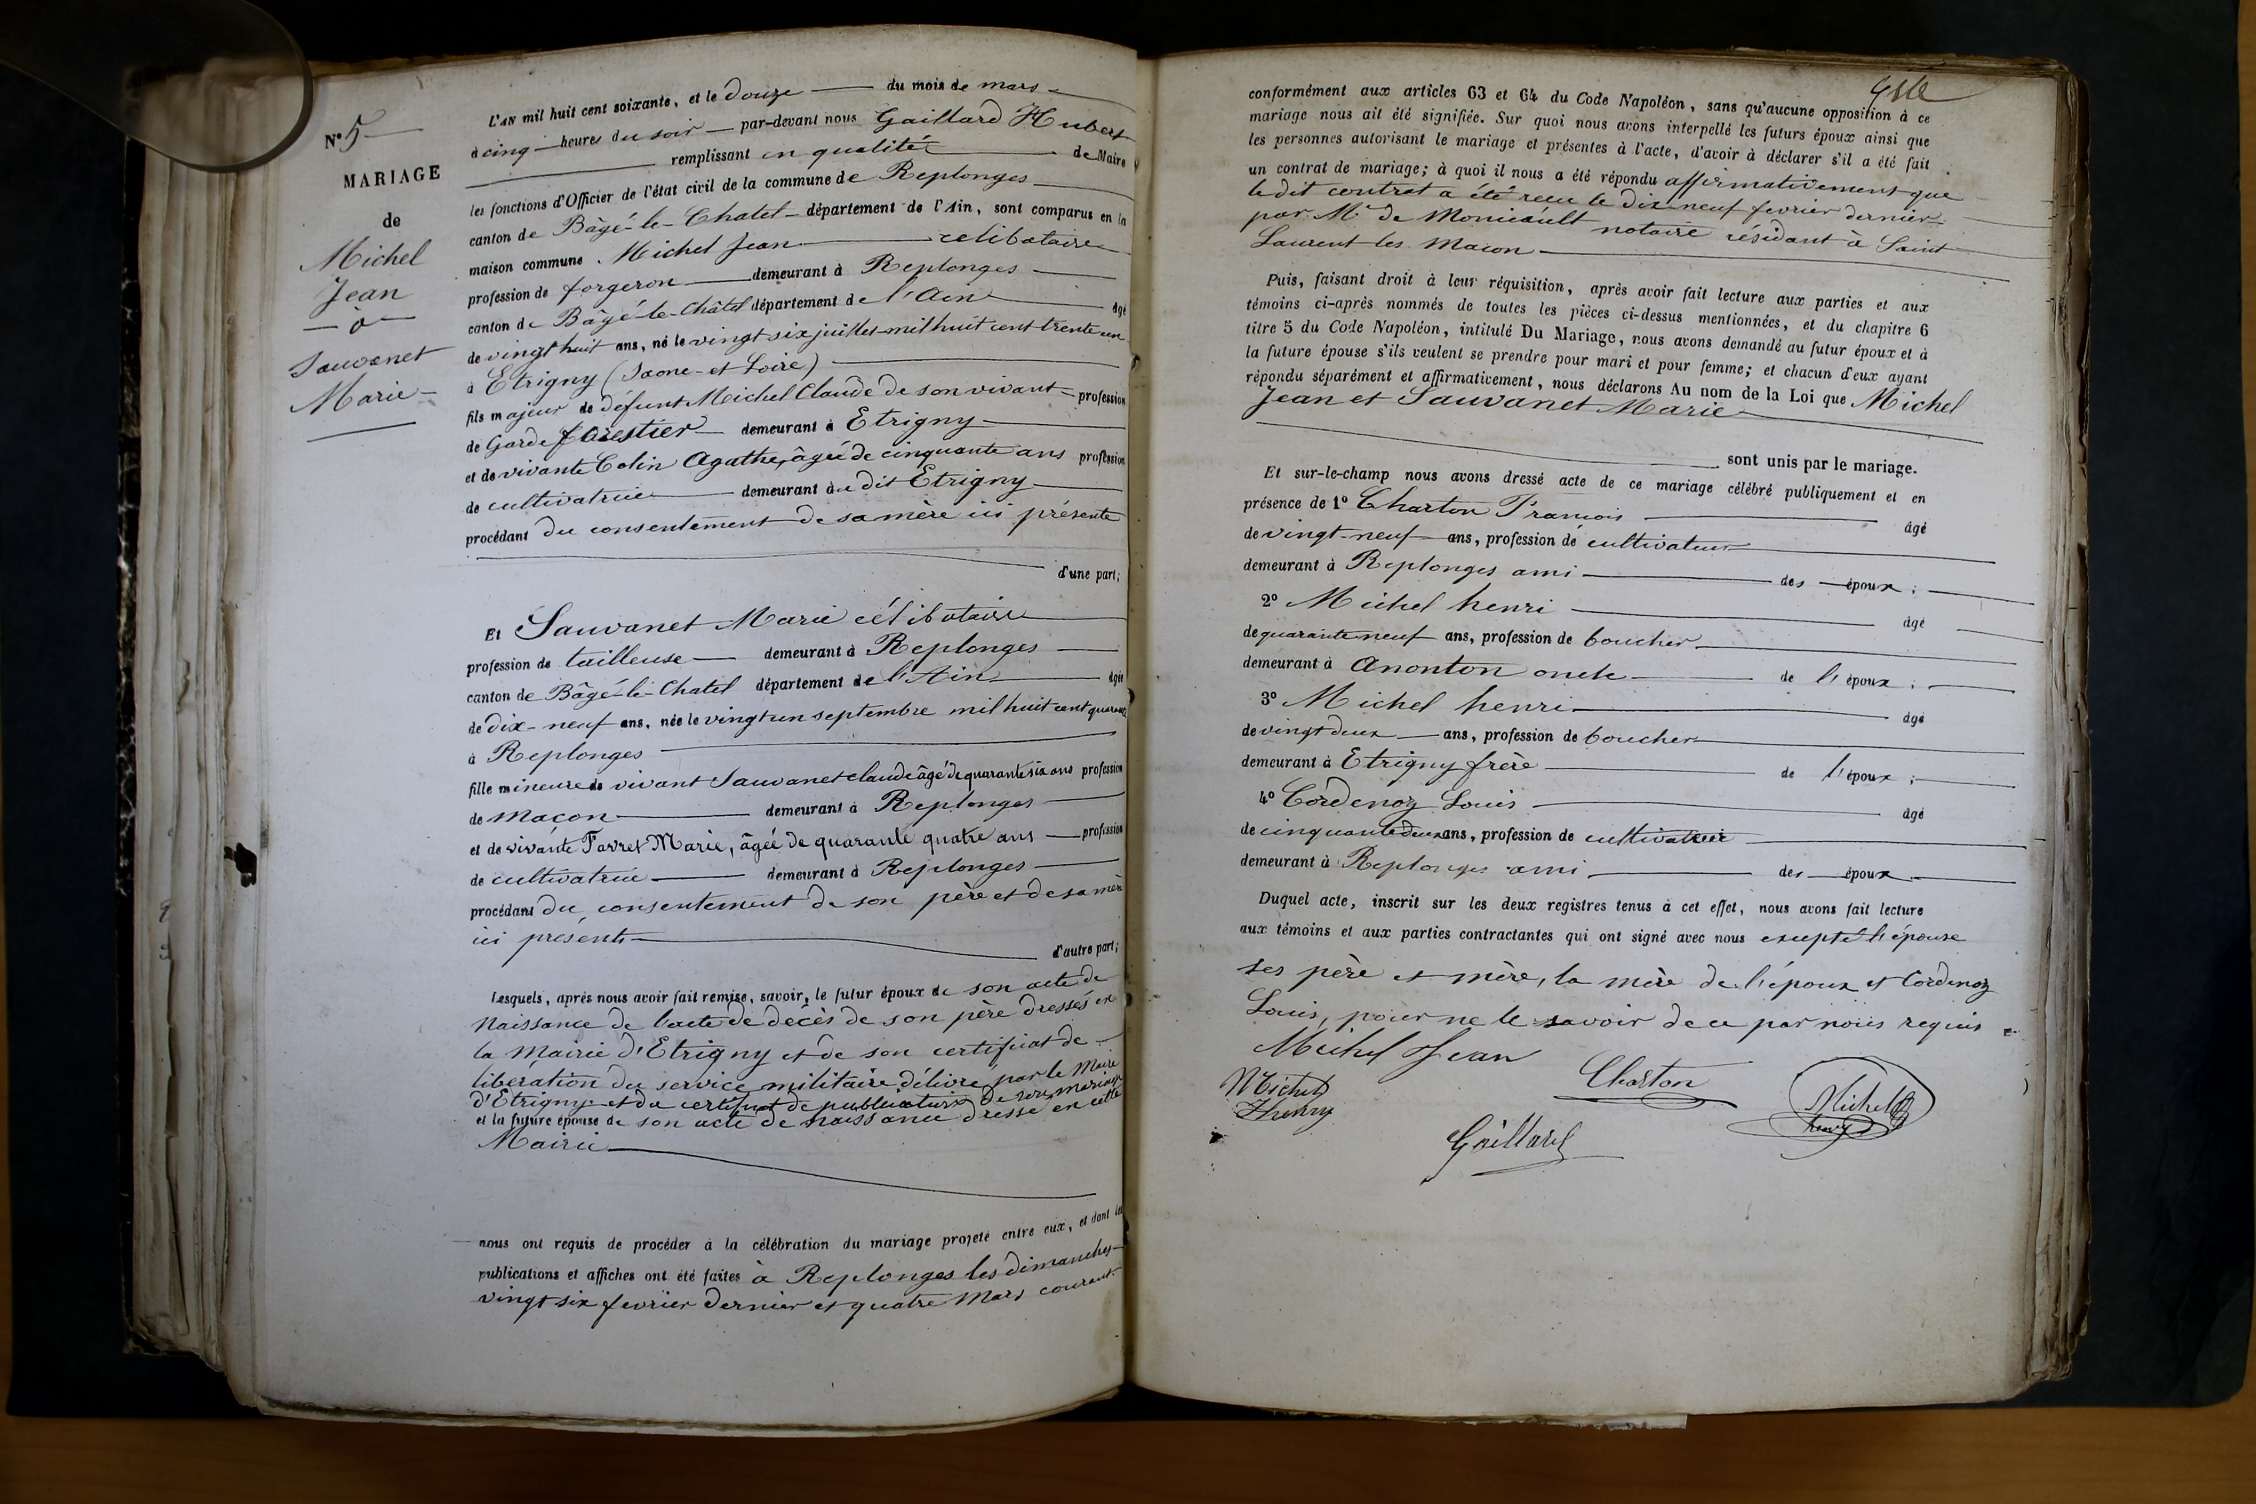 N° 5
MARIAGE
de
Michel
Jean
— à —
Sauvanet
Marie —
L'AN mil huit cent soixante, et le douze — du mois de mars —
à cinq — heures du soir — par-devant nous Gaillard Hubert
remplissant en qualité de Maire
les fonctions d'Officier de l'état civil de la commune de Replonges
canton de Bâgé-le-Chatel — département de l'Ain, sont comparus en la
maison commune Michel Jean celibataire
profession de forgeron — demeurant à Replonges
canton de Bâgé-le-Châtel département de l'Ain âgé
de vingt huit ans, né le vingt six juillet mil huit cent trente un
à Etrigny (Saone-et-Loire)
fils majeur de défunt Michel Claude de son vivant — profession
de Garde forestier — demeurant à Etrigny
et de vivante Colin Agathe, âgée de cinquante ans profession
de cultivatrice — demeurant au dit Etrigny
procédant du consentement de sa mère ici présente
d'une part;
Et Sauvanet Marie célibataire
profession de tailleuse — demeurant à Replonges
canton de Bâgé-le-Chatel département de l'Ain âgée
de dix-neuf ans, née le vingt un septembre mil huit cent quarante
à Replonges
fille mineure de vivant Sauvanet Claude âgé de quarante six ans profession
de maçon — demeurant à Replonges
et de vivante Favret Marie, âgée de quarante quatre ans — profession
de cultivatrice — demeurant à Replonges
procédant du consentement de son père et de sa mère
ici présents
d'autre part;
Lesquels, après nous avoir fait remise, savoir, le futur époux de son acte de
Naissance de l'acte de decès de son père dressés en
la Mairie d'Etrigny et de son certificat de
libération du service militaire délivré par le Maire
d'Etrigny et du certificat de publication de son mariage
et la future épouse de son acte de naissance dressé en cette
Mairie
nous ont requis de procéder à la célébration du mariage projeté entre eux, et dont les
publications et affiches ont été faites à Replonges les dimanches
vingt six fevrier dernier et quatre Mars courant
conformément aux articles 63 et 64 du Code Napoléon, sans qu'aucune opposition à ce
mariage nous ait été signifiée. Sur quoi nous avons interpellé les futurs époux ainsi que
les personnes autorisant le mariage et présentes à l'acte, d'avoir à déclarer s'il a été fait
un contrat de mariage; à quoi il nous a été répondu affirmativement que
le dit contrat a été reçu le dix-neuf fevrier dernier
par Me de Monicault notaire résidant à Saint
Laurent les Macon
Puis, faisant droit à leur réquisition, après avoir fait lecture aux parties et aux
témoins ci-après nommés de toutes les pièces ci-dessus mentionnées, et du chapitre 6
titre 5 du Code Napoléon, intitulé Du Mariage, nous avons demandé au futur époux et à
la future épouse s'ils veulent se prendre pour mari et pour femme; et chacun d'eux ayant
répondu séparément et affirmativement, nous déclarons Au nom de la Loi que Michel
Jean et Sauvanet Marie
sont unis par le mariage.
Et sur-le-champ nous avons dressé acte de ce mariage célébré publiquement et en
présence de 1° Charton François âgé
de vingt-neuf ans, profession de cultivateur
demeurant à Replonges ami des époux;
2° Michel henri âgé
de quarante neuf ans, profession de boucher
demeurant à Anonton oncle de l'époux;
3° Michel henri âgé
de vingt deux ans, profession de boucher
demeurant à Etrigny frère de l'époux;
4° Cordenoz Louis âgé
de cinquante deux ans, profession de cultivateur
demeurant à Replonges ami des époux
Duquel acte, inscrit sur les deux registres tenus à cet effet, nous avons fait lecture
aux témoins et aux parties contractantes qui ont signé avec nous excepté l'épouse
ses père et mère, la mère de l'époux et Cordenoz
Louis, pour ne le savoir de ce par nous requis
Michel Jean
Michel Henry
Charton
Michel henry
Gaillard